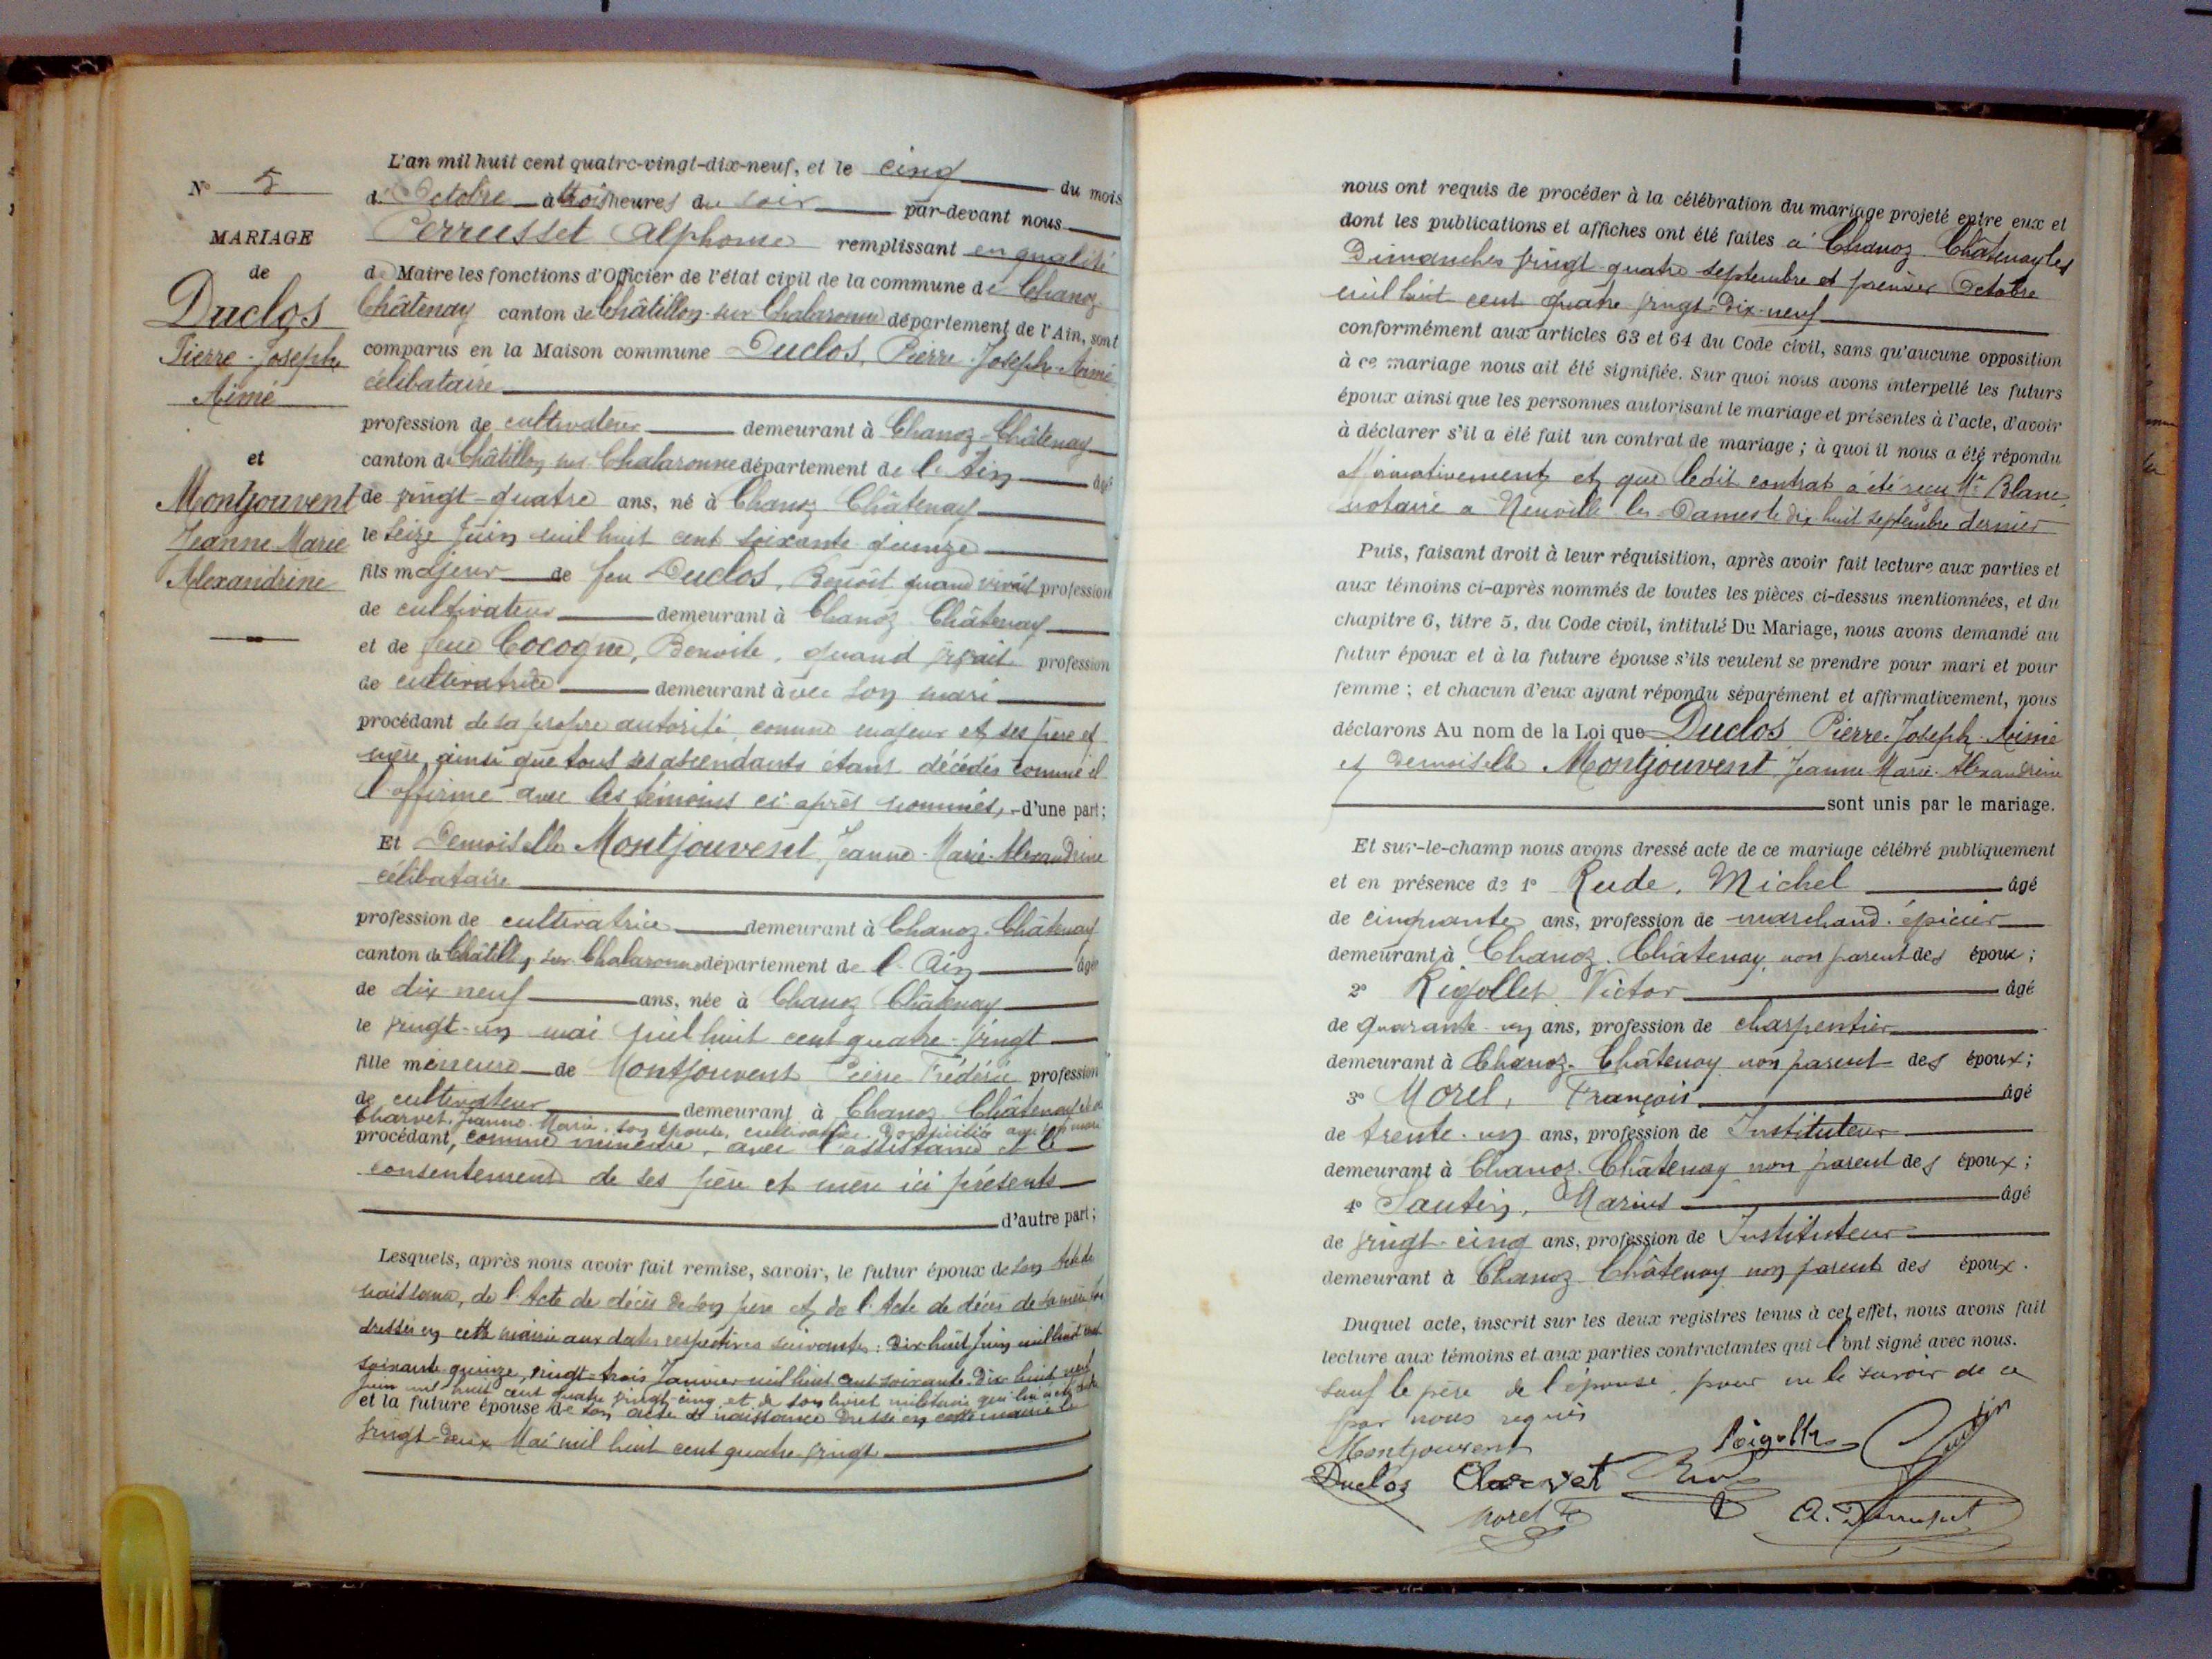 N° 5
MARIAGE
de
Duclos
Pierre-Joseph
Aimé
et
Montjouvent
Jeanne Marie
Alexandrine
L'an mil huit cent quatre-vingt-dix-neuf, et le cinq du mois
d'Octobre à trois heures du soir par-devant nous
Perrusset Alphonse remplissant en qualité
de Maire les fonctions d'Officier de l'état civil de la commune de Chanoz
Châtenay canton de Châtillon-sur-Chalaronne département de l'Ain, sont
comparus en la Maison commune Duclos, Pierre-Joseph-Aimé
célibataire
profession de cultivateur demeurant à Chanoz-Châtenay
canton de Châtillon sur Chalaronne département de l'Ain âgé
de vingt-quatre ans, né à Chanoz Châtenay
le seize juin mil huit cent soixante quinze
fils majeur de feu Duclos, Benoît quand vivait profession
de cultivateur demeurant à Chanoz Châtenay
et de feue Cocogne, Benoite, quand vivait profession
de cultivatrice demeurant avec son mari
procédant de sa propre autorité, comme majeur et ses père et
mère, ainsi que tous ses ascendants étant décédés comme il
l'affirme avec les témoins ci-après nommés, d'une part;
Et Demoiselle Montjouvent Jeanne-Marie-Alexandrine
célibataire
profession de cultivatrice demeurant à Chanoz-Châtenay
canton de Châtillon sur Chalaronne département de l'Ain âgée
de dix neuf ans, née à Chanoz Châtenay
le vingt-un mai mil huit cent quatre-vingt
fille mineure de Montjouvent Pierre Frédéric profession
de cultivateur demeurant à Chanoz Châtenay et de
Charvet, Jeanne-Marie, son épouse, cultivatrice domiciliée avec son mari
procédant, comme mineure, avec l'assistance et le
consentement de ses père et mère ici présents
d'autre part;
Lesquels, après nous avoir fait remise, savoir, le futur époux de son Acte de
naissance, de l'Acte de décès de son père et de l'Acte de décès de sa mère
dressés en cette mairie aux dates respectives suivantes: dix-huit juin mil huit cent
soixante-quinze, vingt-trois Janvier mil huit cent soixante-dix-huit neuf
juin mil huit cent quatre vingt-cinq et de son livret militaire qui lui a été
et la future épouse de son acte de naissance dressé en cette mairie le
vingt-deux Mai mil huit cent quatre vingt
nous ont requis de procéder à la célébration du mariage projeté entre eux et
dont les publications et affiches ont été faites à Chanoz-Châtenay les
Dimanches vingt quatre septembre et premier Octobre
mil huit cent quatre vingt-dix-neuf
conformément aux articles 63 et 64 du Code civil, sans qu'aucune opposition
à ce mariage nous ait été signifiée. Sur quoi nous avons interpellé les futurs
époux ainsi que les personnes autorisant le mariage et présentes à l'acte, d'avoir
à déclarer s'il a été fait un contrat de mariage; à quoi il nous a été répondu
affirmativement et que ledit contrat a été reçu Me Blanc
notaire à Neuville les Dames le dix huit septembre dernier
Puis, faisant droit à leur réquisition, après avoir fait lecture aux parties et
aux témoins ci-après nommés de toutes les pièces ci-dessus mentionnées, et du
chapitre 6, titre 5, du Code civil, intitulé Du Mariage, nous avons demandé au
futur époux et à la future épouse s'ils veulent se prendre pour mari et pour
femme; et chacun d'eux ayant répondu séparément et affirmativement, nous
déclarons Au nom de la Loi que Duclos Pierre-Joseph-Aimé
et Demoiselle Montjouvent Jeanne-Marie-Alexandrine
sont unis par le mariage.
Et sur-le-champ nous avons dressé acte de ce mariage célébré publiquement
et en présence de 1° Rude, Michel âgé
de cinquante ans, profession de marchand-épicier
demeurant à Chanoz-Châtenay, non parent des époux;
2° Rigollet Victor âgé
de quarante-un ans, profession de charpentier
demeurant à Chanoz-Châtenay non parent des époux;
3° Morel, François âgé
de trente-un ans, profession de Instituteur
demeurant à Chanoz-Châtenay non parent des époux;
4° Sautin, Marius âgé
de vingt-cinq ans, profession de Instituteur
demeurant à Chanoz-Châtenay non parent des époux.
Duquel acte, inscrit sur les deux registres tenus à cet effet, nous avons fait
lecture aux témoins et aux parties contractantes qui l'ont signé avec nous.
sauf le père de l'épouse, pour ne le savoir de ce
par nous requis
Montjouvent Rigollet Sautin
Duclos Charvet Rude
Morel F A. Perrusset